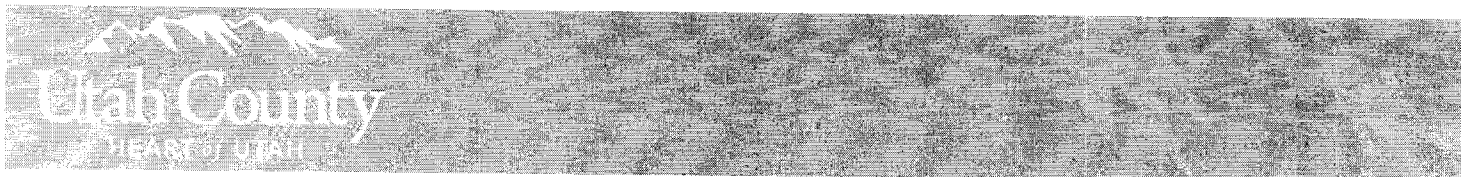 Utah County
HEART of UTAH